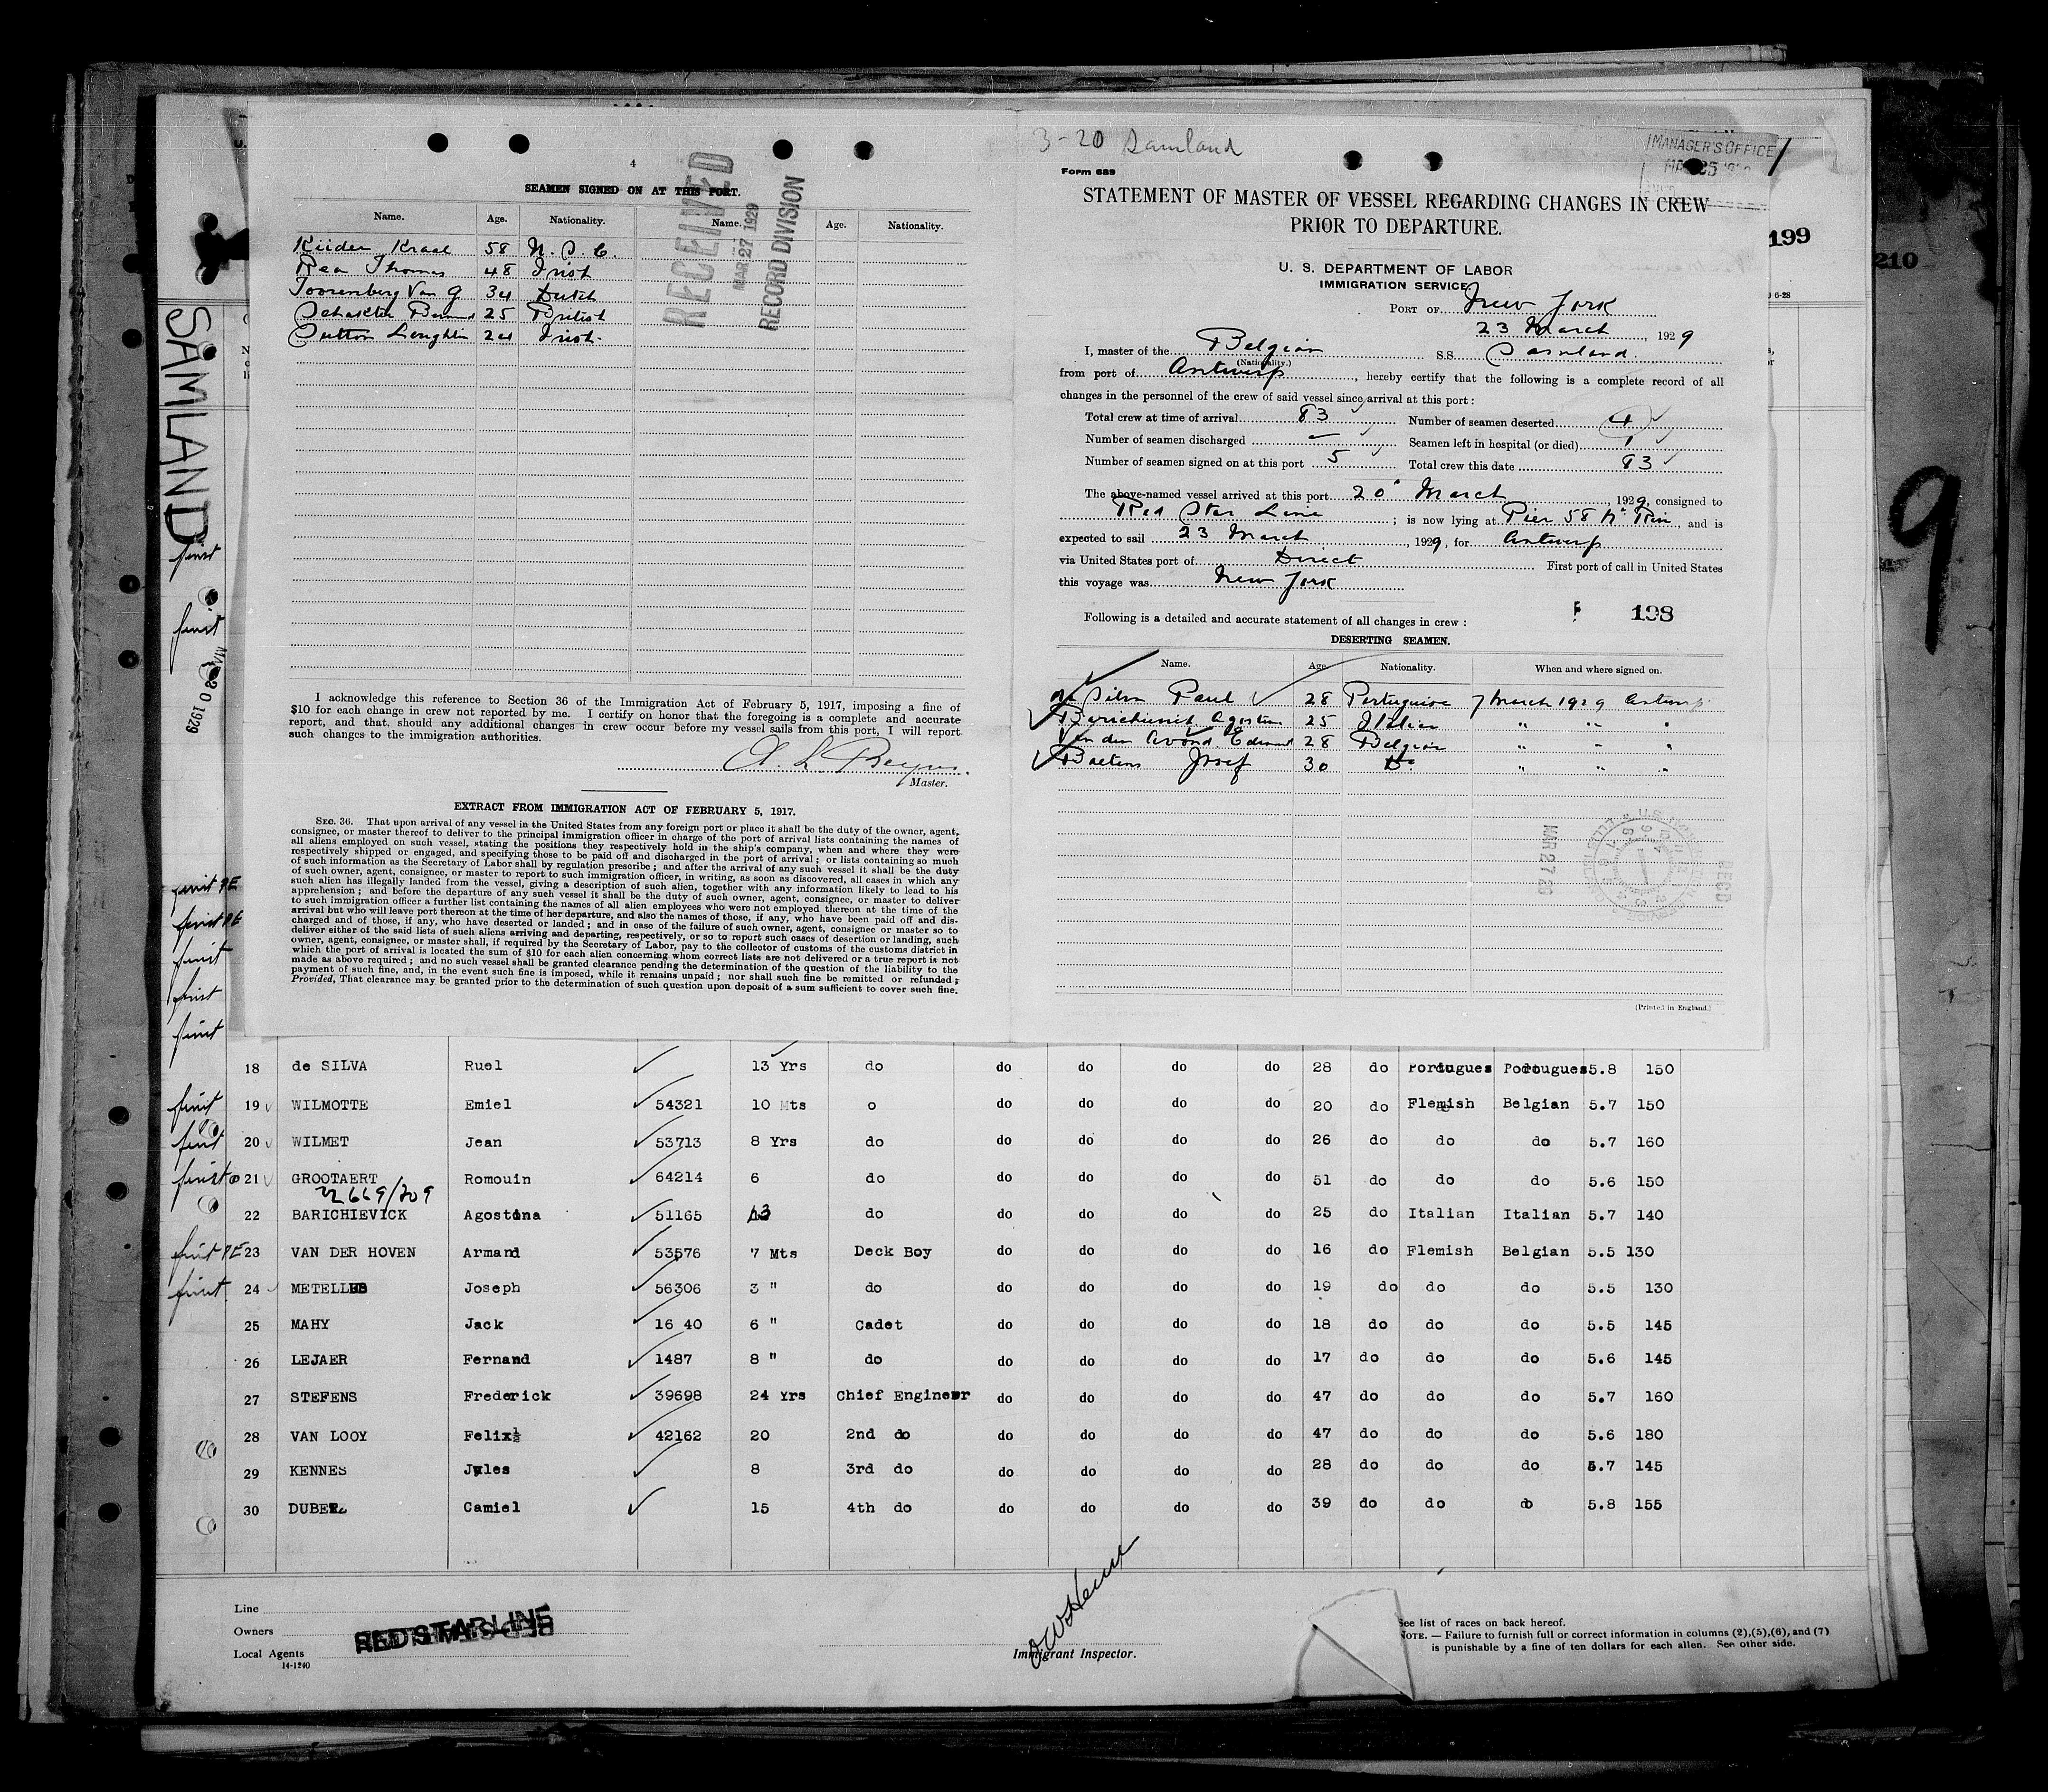 4
SEAMEN SIGNED ON AT THIS PORT.
Name. Age. Nationality. Name. Age. Nationality.
Kraal 58 U. S. C.
Rea Thomas 48 Irish
Toorenberg Van G 34 Dutch
25 British
Sutton 24 Irish.
RECEIVED
MAR 27 1929
RECORD DIVISION
I acknowledge this reference to Section 36 of the Immigration Act of February 5, 1917, imposing a fine of
$10 for each change in crew not reported by me. I certify on honor that the foregoing is a complete and accurate
report, and that, should any additional changes in crew occur before my vessel sails from this port, I will report
such changes to the immigration authorities.
Master.
EXTRACT FROM IMMIGRATION ACT OF FEBRUARY 5, 1917.
SEC. 36. That upon arrival of any vessel in the United States from any foreign port or place it shall be the duty of the owner, agent,
consignee, or master thereof to deliver to the principal immigration officer in charge of the port of arrival lists containing the names of
all aliens employed on such vessel, stating the positions they respectively hold in the ship's company, when and where they were
respectively shipped or engaged, and specifying those to be paid off and discharged in the port of arrival; or lists containing so much
of such information as the Secretary of Labor shall by regulation prescribe; and after the arrival of any such vessel it shall be the duty
of such owner, agent, consignee, or master to report to such immigration officer, in writing, as soon as discovered, all cases in which any
such alien has illegally landed from the vessel, giving a description of such alien, together with any information likely to lead to his
apprehension; and before the departure of any such vessel it shall be the duty of such owner, agent, consignee, or master to deliver
to such immigration officer a further list containing the names of all alien employees who were not employed thereon at the time of the
arrival but who will leave port thereon at the time of her departure, and also the names of those, if any, who have been paid off and dis-
charged and of those, if any, who have deserted or landed; and in case of the failure of such owner, agent, consignee or master so to
deliver either of the said lists of such aliens arriving and departing, respectively, or so to report such cases of desertion or landing, such
owner, agent, consignee, or master shall, if required by the Secretary of Labor, pay to the collector of customs of the customs district in
which the port of arrival is located the sum of $10 for each alien concerning whom correct lists are not delivered or a true report is not
made as above required; and no such vessel shall be granted clearance pending the determination of the question of the liability to the
payment of such fine, and, in the event such fine is imposed, while it remains unpaid; nor shall such fine be remitted or refunded;
Provided, That clearance may be granted prior to the determination of such question upon deposit of a sum sufficient to cover such fine.
3-20 Samland
MANAGER'S OFFICE
Form 689
STATEMENT OF MASTER OF VESSEL REGARDING CHANGES IN CREW
PRIOR TO DEPARTURE.
U. S. DEPARTMENT OF LABOR
IMMIGRATION SERVICE
PORT OF New York
23 March, 1929
I, master of the Belgian S.S. Samland
(Nationality.)
from port of Antwerp, hereby certify that the following is a complete record of all
changes in the personnel of the crew of said vessel since arrival at this port:
Total crew at time of arrival 83 Number of seamen deserted 4
Number of seamen discharged Seamen left in hospital (or died) 1
Number of seamen signed on at this port 5 Total crew this date 83
The above-named vessel arrived at this port 20 March, 1929, consigned to
Red Star Line; is now lying at Pier 58 N. Riv, and is
expected to sail 23 March, 1929, for Antwerp
via United States port of Direct First port of call in United States
this voyage was New York
198
Following is a detailed and accurate statement of all changes in crew:
DESERTING SEAMEN.
Name. Age Nationality. When and where signed on.
de Silva Paul 28 Portuguise 7 March 1929 Antwerp
Barichievick Agostino 25 Italian " " "
Van den Avond Edmond 28 Belgian " " "
Baetens Josef 30 Do " " "
MAR 27 29
REC'D
(Printed in England.)
199
210
9
SAMLAND
MAR 20 1929
18 de SILVA Ruel 13 Yrs do do do do do 28 do Portugues Portugues 5.8 150
19 WILMOTTE Emiel 54321 10 Mts o do do do do 20 do Flemish Belgian 5.7 150
20 WILMET Jean 53713 8 Yrs do do do do do 26 do do do 5.7 160
21 GROOTAERT Romouin 64214 6 do do do do do 51 do do do 5.6 150
22669/209
22 BARICHIEVICK Agostina 51165 13 do do do do do 25 do Italian Italian 5.7 140
23 VAN DER HOVEN Armand 53576 7 Mts Deck Boy do do do do 16 do Flemish Belgian 5.5 130
24 METELLES Joseph 56306 3 " do do do do do 19 do do do 5.5 130
25 MAHY Jack 16 40 6 " Cadet do do do do 18 do do do 5.5 145
26 LEJAER Fernand 1487 8 " do do do do do 17 do do do 5.6 145
27 STEFENS Frederick 39698 24 Yrs Chief Engineer do do do do 47 do do do 5.7 160
28 VAN LOOY Felix½ 42162 20 2nd do do do do do 47 do do do 5.6 180
29 KENNES Jules 8 3rd do do do do do 28 do do do 5.7 145
30 Camiel 15 4th do do do do do 39 do do do 5.8 155
Line
Owners RED STAR LINE
Local Agents
14-1240
Immigrant Inspector.
See list of races on back hereof.
NOTE.—Failure to furnish full or correct information in columns (2),(5),(6), and (7)
is punishable by a fine of ten dollars for each alien. See other side.